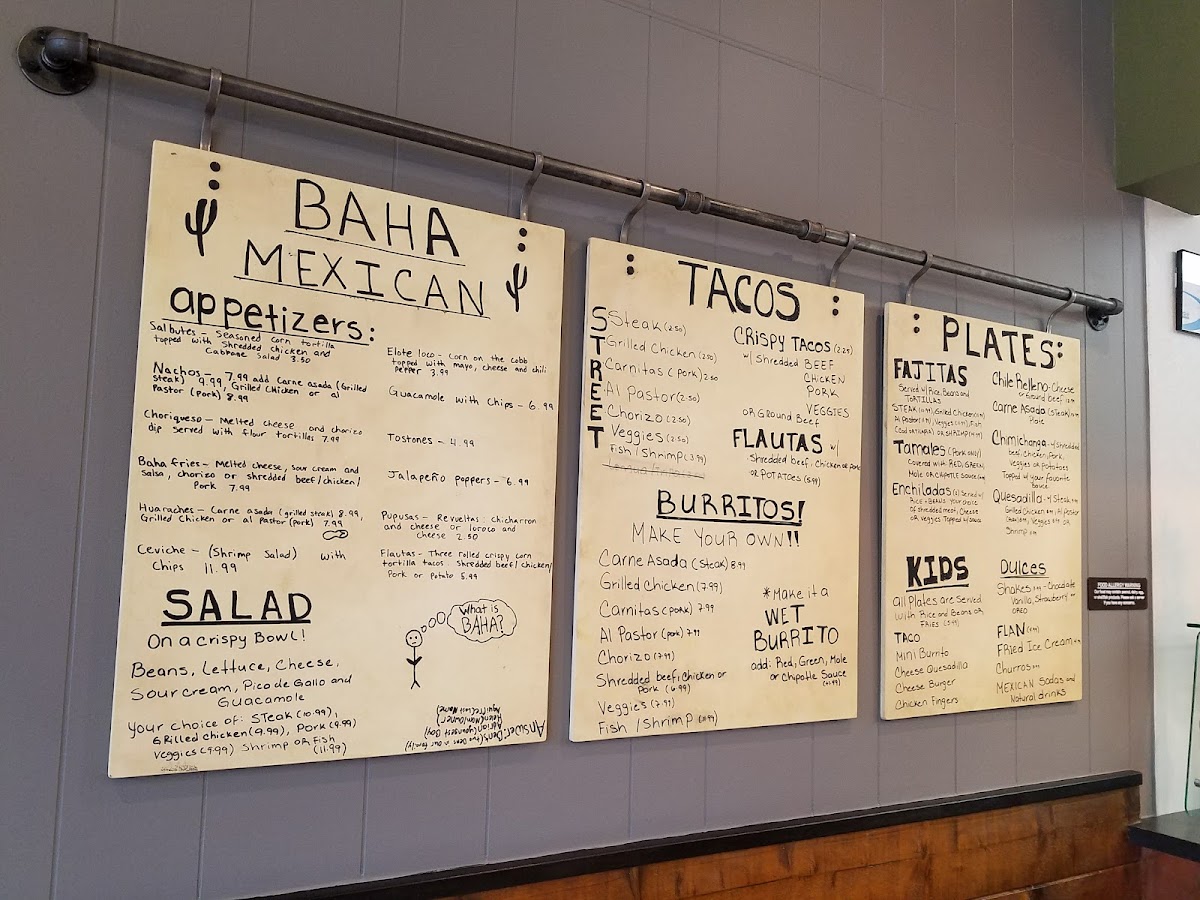 BAHA
MEXICAN
appetizers:
Salbutes - Seasoned corn tortilla
topped with shredded chicken and
Cabbage Salad 3.50
Nachos - 7.99 add carne asada (Grilled
steak) 9.99, Grilled Chicken or al
Pastor (pork) 8.99
Choriqueso - Melted cheese and chorizo
dip served with flour tortillas 7.99
Baha fries - Melted cheese, sour cream and
salsa, chorizo or shredded beef/chicken/
Pork 7.99
Huaraches - Carne asada (grilled steak) 8.99,
Grilled Chicken or al Pastor (pork) 7.99
Ceviche - (Shrimp Salad) with
Chips 11.99
Elote loco - Corn on the cobb
topped with mayo, cheese and chili
pepper 3.99
Guacamole with Chips - 6.99
Tostones - 4.99
Jalapeño poppers - 6.99
Pupusas - Revueltas: chicharron
and cheese or loroco and
cheese 2.50
Flautas - Three rolled crispy corn
tortilla tacos. Shredded beef/chicken/
Pork or Potato 5.99
SALAD
On a crispy Bowl!
Beans, Lettuce, Cheese,
Sour cream, Pico de Gallo and
Guacamole
Your choice of: Steak (10.99),
Grilled chicken (9.99), Pork (9.99)
Veggies (9.99) Shrimp or Fish
(11.99)
What is
BAHA?
Answer:
TACOS
STREET
Steak (2.50)
Grilled Chicken (2.50)
Carnitas (Pork) 2.50
Al Pastor (2.50)
Chorizo (2.50)
Veggies (2.50)
Fish/Shrimp (3.99)
CRISPY TACOS (2.25)
w/ Shredded BEEF
CHICKEN
PORK
VEGGIES
OR Ground Beef
FLAUTAS w/
Shredded beef, Chicken or Pork
OR POTATOES (5.99)
BURRITOS!
MAKE YOUR OWN!!
Carne Asada (Steak) 8.99
Grilled Chicken (7.99)
Carnitas (pork) 7.99
Al Pastor (pork) 7.99
Chorizo (7.99)
Shredded beef, Chicken or
Pork (6.99)
Veggies (7.99)
Fish/Shrimp
*Make it a
WET
BURRITO
add: Red, Green, Mole
or Chipotle Sauce
PLATES:
FAJITAS
Served w/ Rice, Beans and
TORTILLAS
STEAK Grilled Chicken
Al Pastor Veggies Fish
OR SHRIMP
Tamales (Pork only)
Covered with RED, GREEN,
Mole OR CHIPOTLE SAUCE
Enchiladas (2) Served w/
RICE + BEANS. Your choice
of shredded meat, Cheese
or Veggies Topped w/ sauce
Chile Relleno - Cheese
or Ground Beef
Carne Asada (Steak)
Plate
Chimichanga - w/ shredded
beef, Chicken, Pork,
Veggies or Potatoes
Topped w/ your favorite
Sauce
Quesadilla - w/ Steak
Grilled Chicken Al Pastor
Veggies OR
Shrimp
KIDS
All Plates are Served
with Rice and Beans or
FRIES (5.99)
TACO
Mini Burrito
Cheese Quesadilla
Cheese Burger
Chicken Fingers
DULCES
Shakes - Chocolate
Vanilla, Strawberry
OREO
FLAN
Fried Ice Cream
Churros
MEXICAN Sodas and
Natural drinks
FOOD ALLERGY WARNING